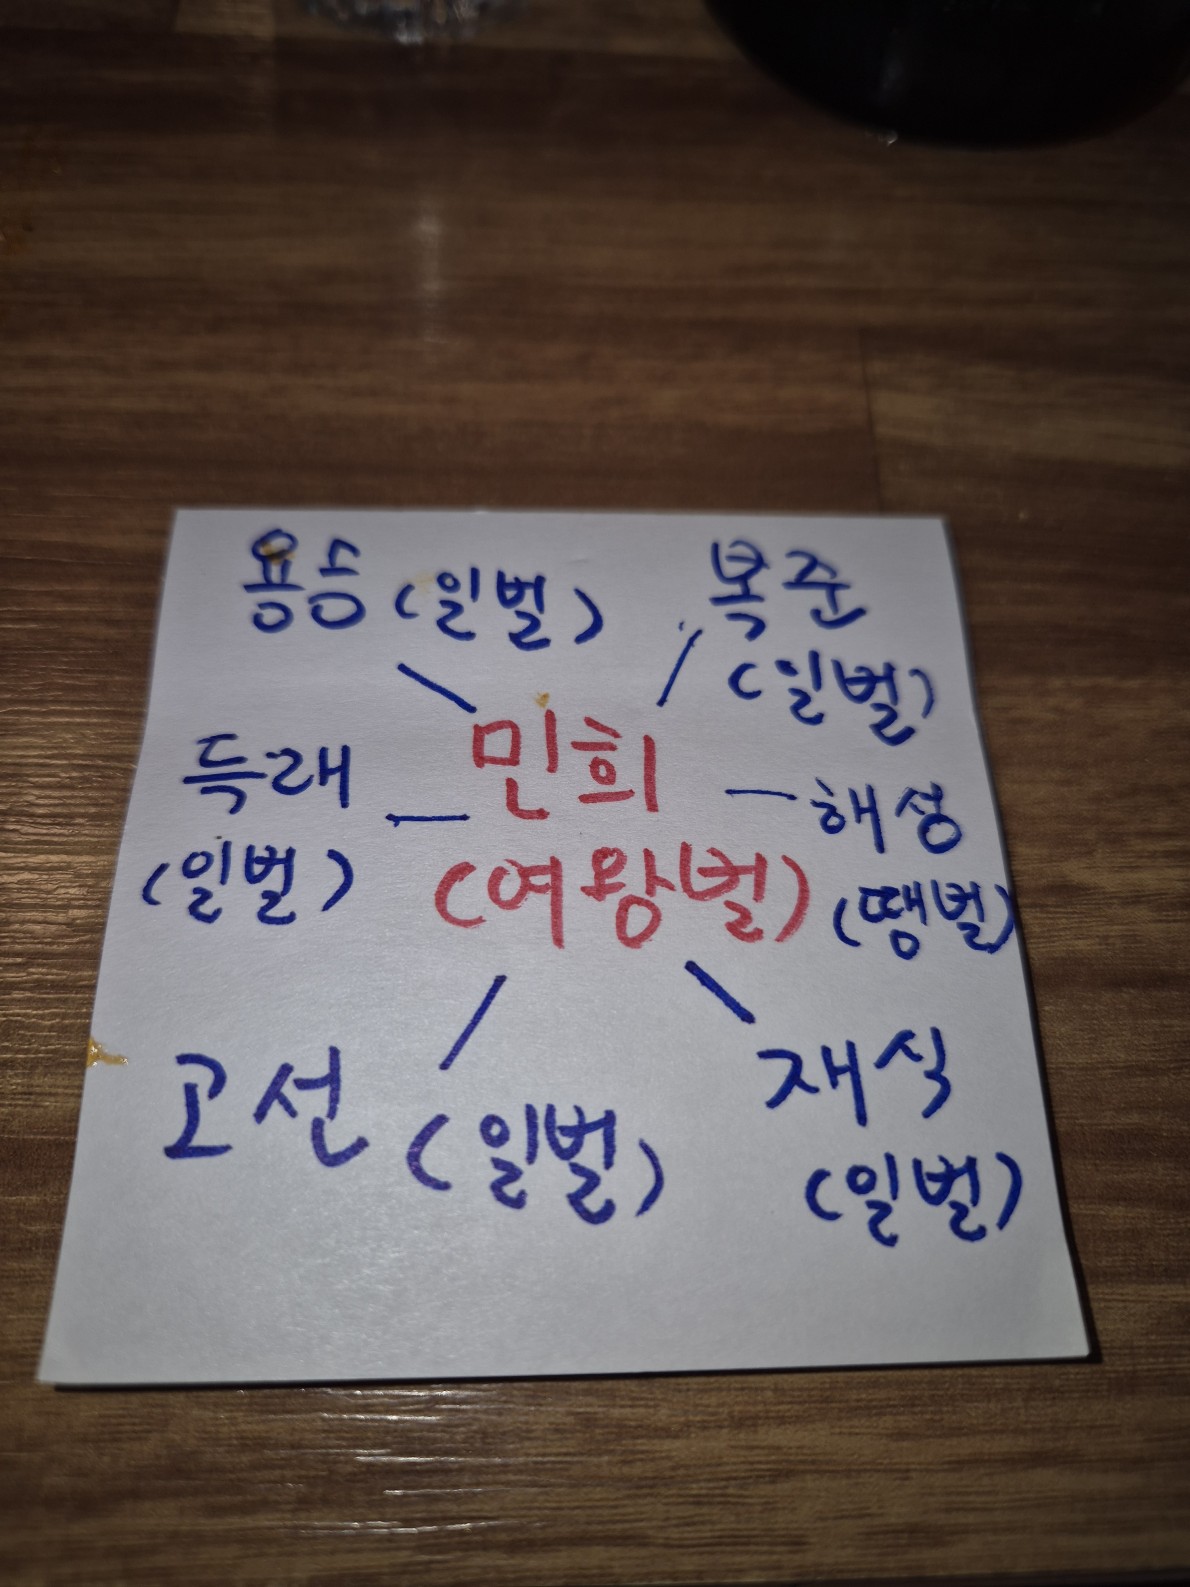 용승 (일벌)
복준
(일벌)
득래
(일벌)
민희
(여왕벌)
해성
(땡벌)
고선 (일벌)
재식
(일벌)